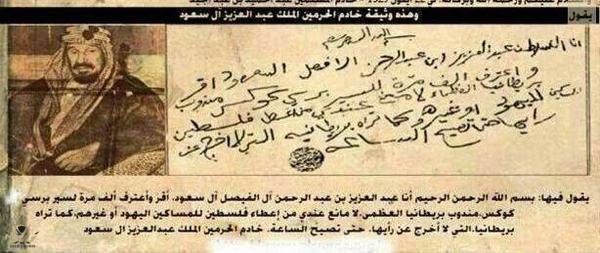 يقول
وهذه وثيقة خادم الحرمين الملك عبد العزيز آل سعود
بسم الله الرحمن الرحيم
انا السلطان عبد العزيز ابن عبد الرحمن الافصل السعود اقر
و اعترف الف مرة للسير برسي كوكس مندوب
بريطانيا العظما لا مانع عندي من اعطا فلسطين
للمساكين اليهود او غيرهم وكما تراه بريطانيه التي لا اخرج عن
رايها حتى تصيح الساعة
يقول فيها: بسم الله الرحمن الرحيم أنا عبد العزيز بن عبد الرحمن آل الفيصل آل سعود، أقر وأعترف ألف مرة لسير برسي
كوكس،مندوب بريطانيا العظمى،لا مانع عندي من إعطاء فلسطين للمساكين اليهود أو غيرهم،كما تراه
بريطانيا،التي لا أخرج عن رأيها، حتى تصيح الساعة. خادم الحرمين الملك عبدالعزيز ال سعود